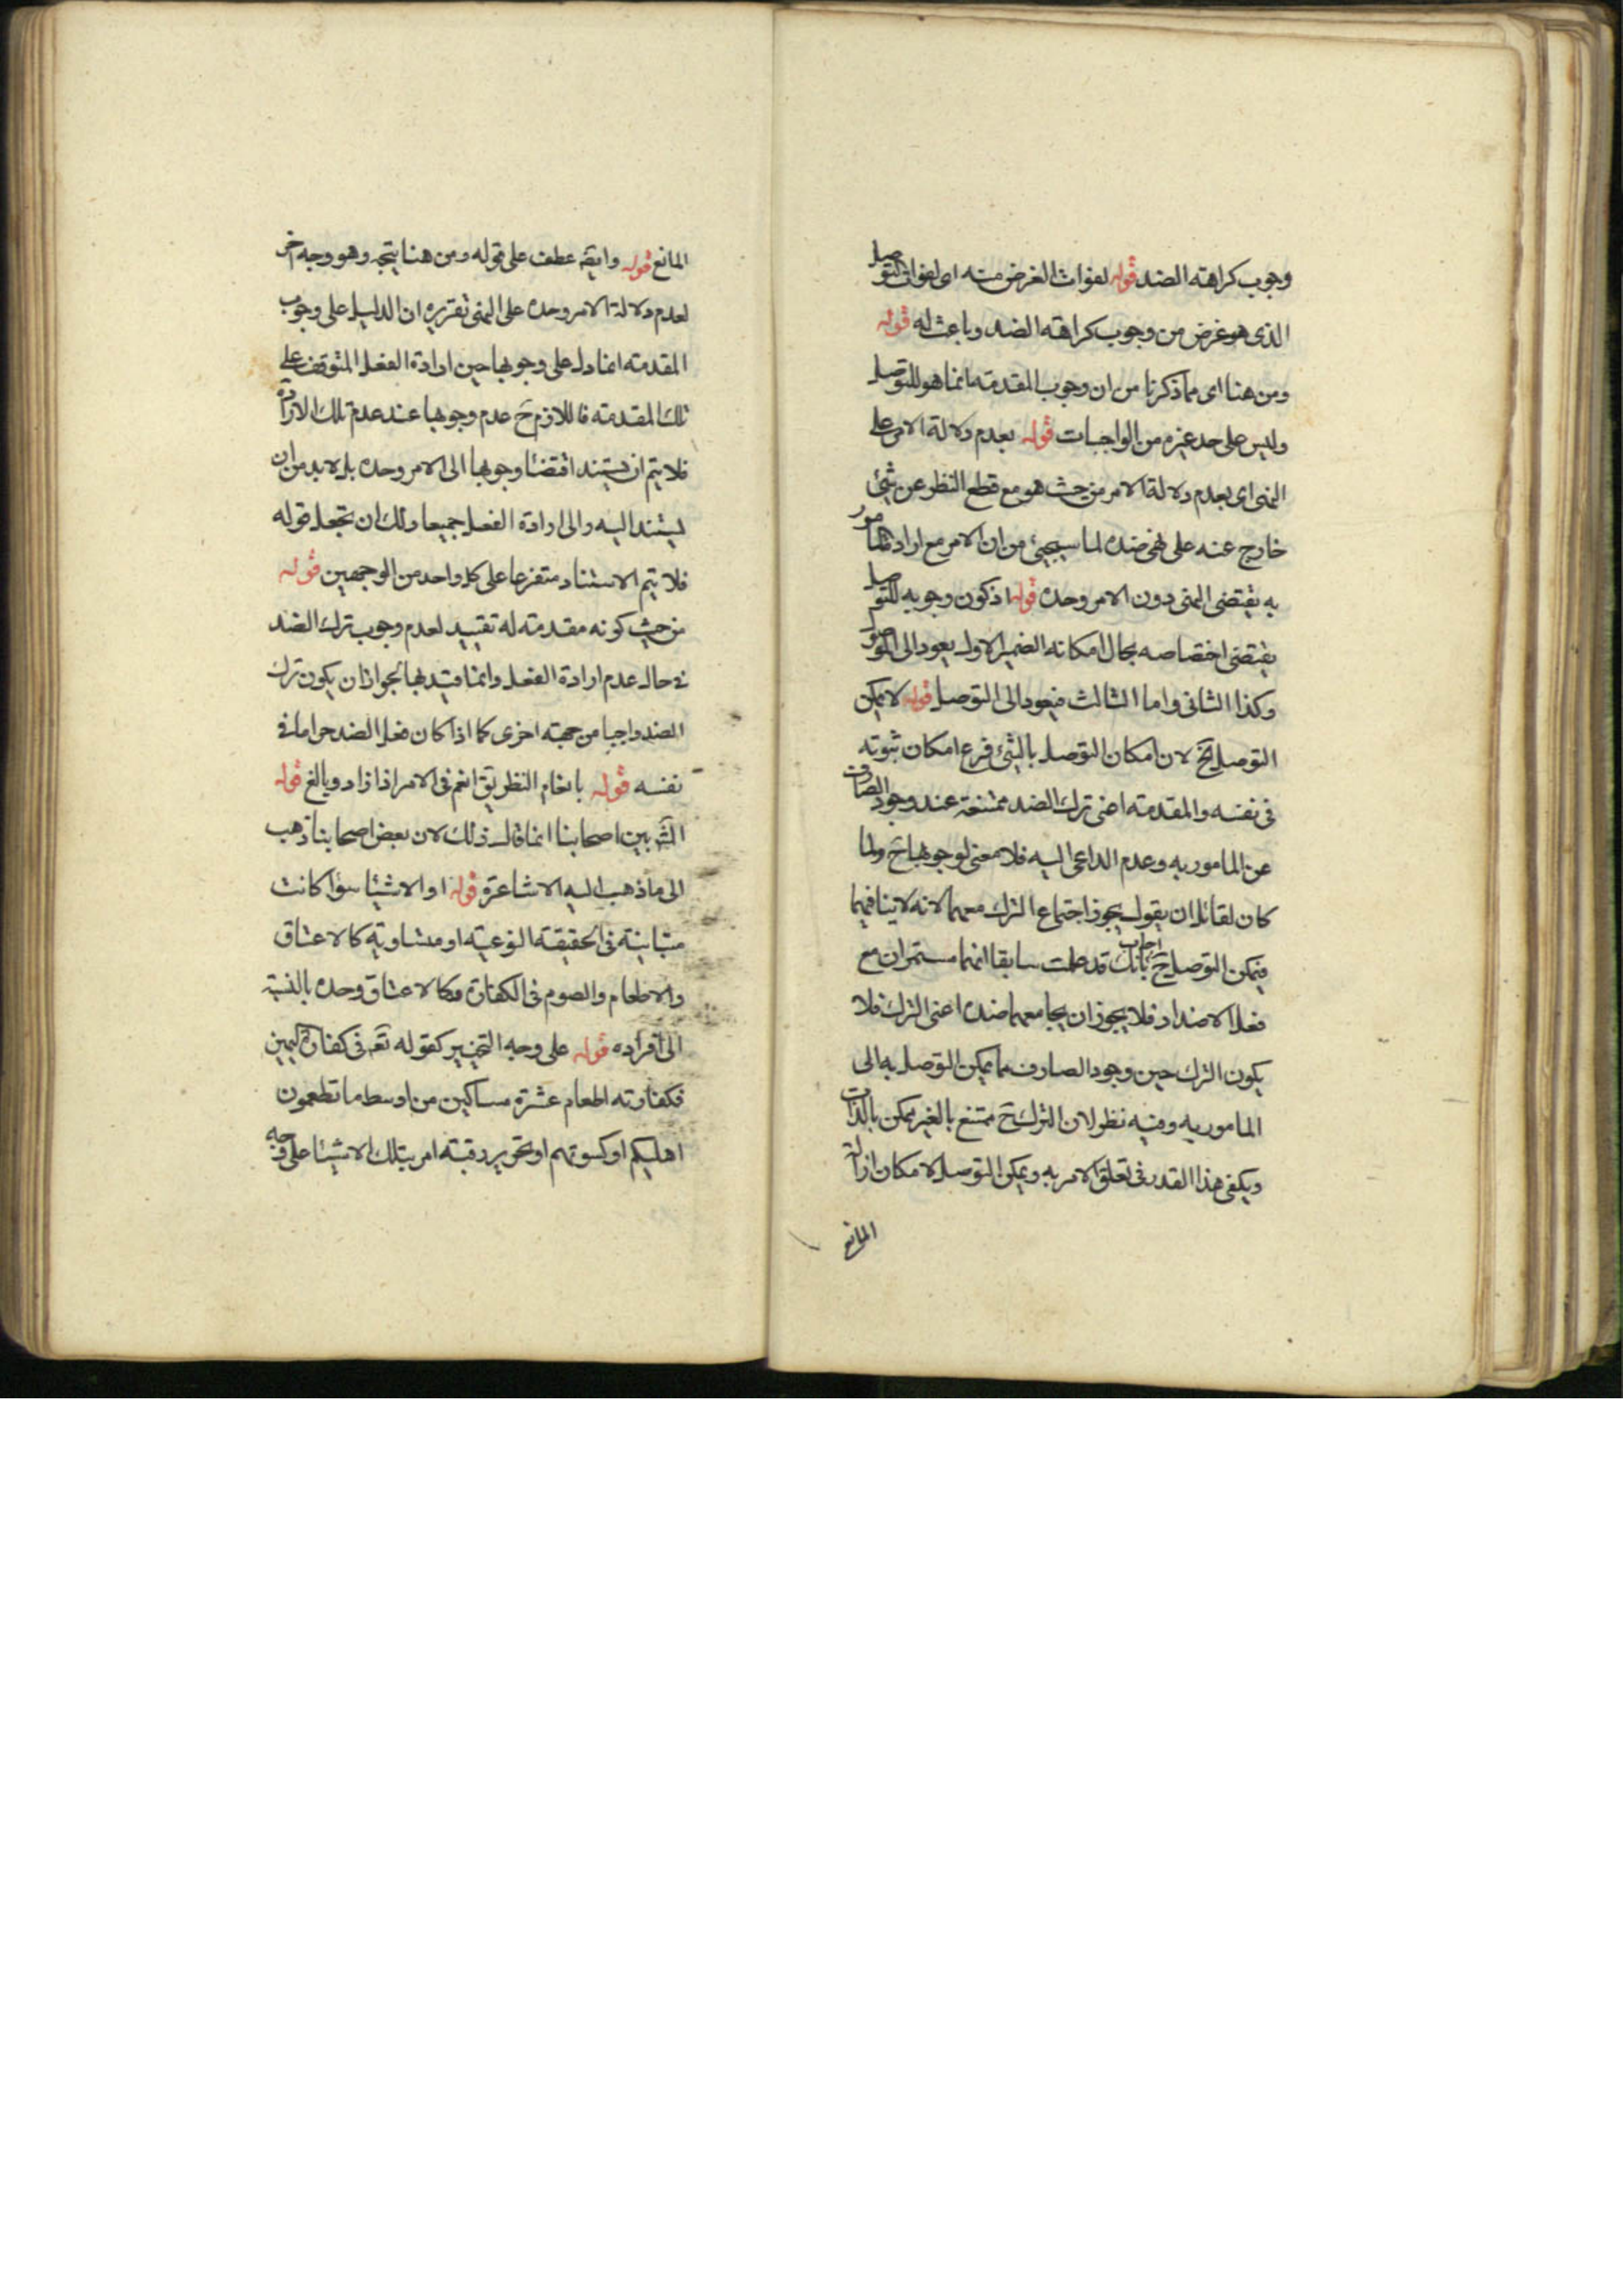 وجوب كراهته الضد قوله لفوات الغرض منه اى لفوات التوصل
الذى هو غرض من وجوب كراهته الضد وباعث له قوله
ومن هنا اى مما ذكرنا من ان وجوب المقدمة انما هو للتوصل
وليس على حد غيره من الواجبات قوله بعدم دلالة الامر على
النهى اى بعدم دلالة الامر من حيث هو مع قطع النظر عن شئ
خارج عنه على نهى ضده لما سيجيئ من ان الامر مع ارادة المامور
به يقتضى النهى دون الامر وحده قوله اذ كون وجوبه للتوصل
يقتضى اختصاصه بحال امكانه الضمير الاول يعود الى
وكذا الثانى واما الثالث فيعود الى التوصل قوله لا يمكن
التوصل الخ لان امكان التوصل بالشئ فرع امكان ثبوته
فى نفسه والمقدمة اعنى ترك الضد ممتنعة عند وجود الصارف
عن المامور به وعدم الداعى اليه فلا معنى لوجوبها ح ولما
كان لقائل ان يقول يجوز اجتماع الترك معهما لانه لا ينافيهما
فيمكن التوصل ح اجاب بانك قد علمت سابقا انهما مستمران مع
فعل الاضداد فلا يجوز ان يجامعهما ضده اعنى الترك فلا
يكون الترك حين وجود الصارف مما يمكن التوصل به الى
المامور به وفيه نظر لان الترك ح ممتنع بالغير يمكن بالذات
ويكفى هذا القدر فى تعلق الامر به ويمكن التوصل لامكان ازالة
المانع
المانع قوله وايضا عطف على قوله ومن هنا يتجه وهو وجه آخر
لعدم دلالة الامر وحده على النهى تقريره ان الدليل على وجوب
المقدمة انما دل على وجوبها حين ارادة الفعل المتوقف على
تلك المقدمة فاللازم ح عدم وجوبها عند عدم تلك الارادة
فلا يتم ان يستند اقتضا وجوبها الى الامر وحده بل لا بد من ان
يستند اليه والى ارادة الفعل جميعا ولك ان تجعل قوله
فلا يتم الاستناد متفرعا على كل واحد من الوجهين قوله
من حيث كونه مقدمته له تقييد لعدم وجوب ترك الضد
فى حال عدم ارادة الفعل وانما قيد بها لجواز ان يكون ترك
الضد واجبا من جهته اخرى كما اذا كان فعل الضد حراما فى
نفسه قوله بانعام النظر يق انعم فى الامر اذا زاد وبالغ قوله
بين اصحابنا انما قال ذلك لان بعض اصحابنا ذهب
الى ما ذهب اليه الاشاعرة قوله او الاشيئا سؤا كانت
متباينة فى الحقيقته النوعيته او متساوية كالاعتاق
والاطعام والصوم فى الكفارة وكالاعتاق وحده بالنسبة
الى افراده قوله على وجه التخيير كقوله تعه فى كفارة اليمين
فكفارته اطعام عشرة مساكين من اوسط ما تطعمون
اهليكم او كسوتهم او تحرير رقبته امر بتلك الاشيئا على وجه